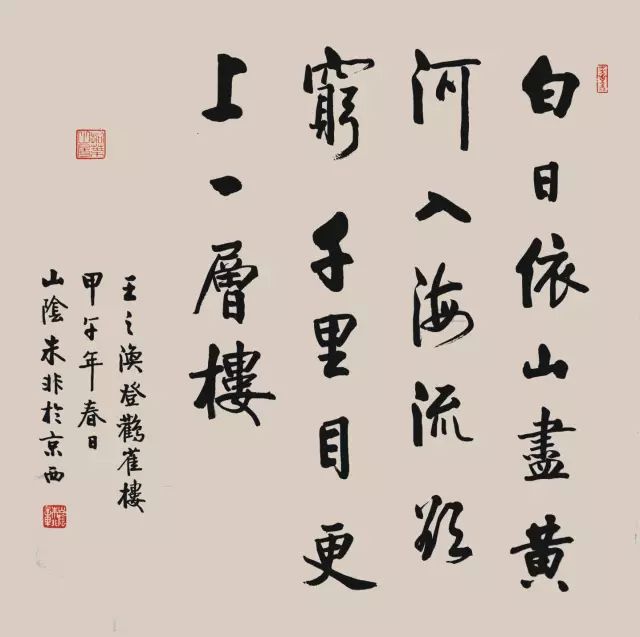 白日依山盡黄
河入海流欲
窮千里目更
上一層樓
王之渙登鸛雀樓
甲午年春日
山陰朱非於京西